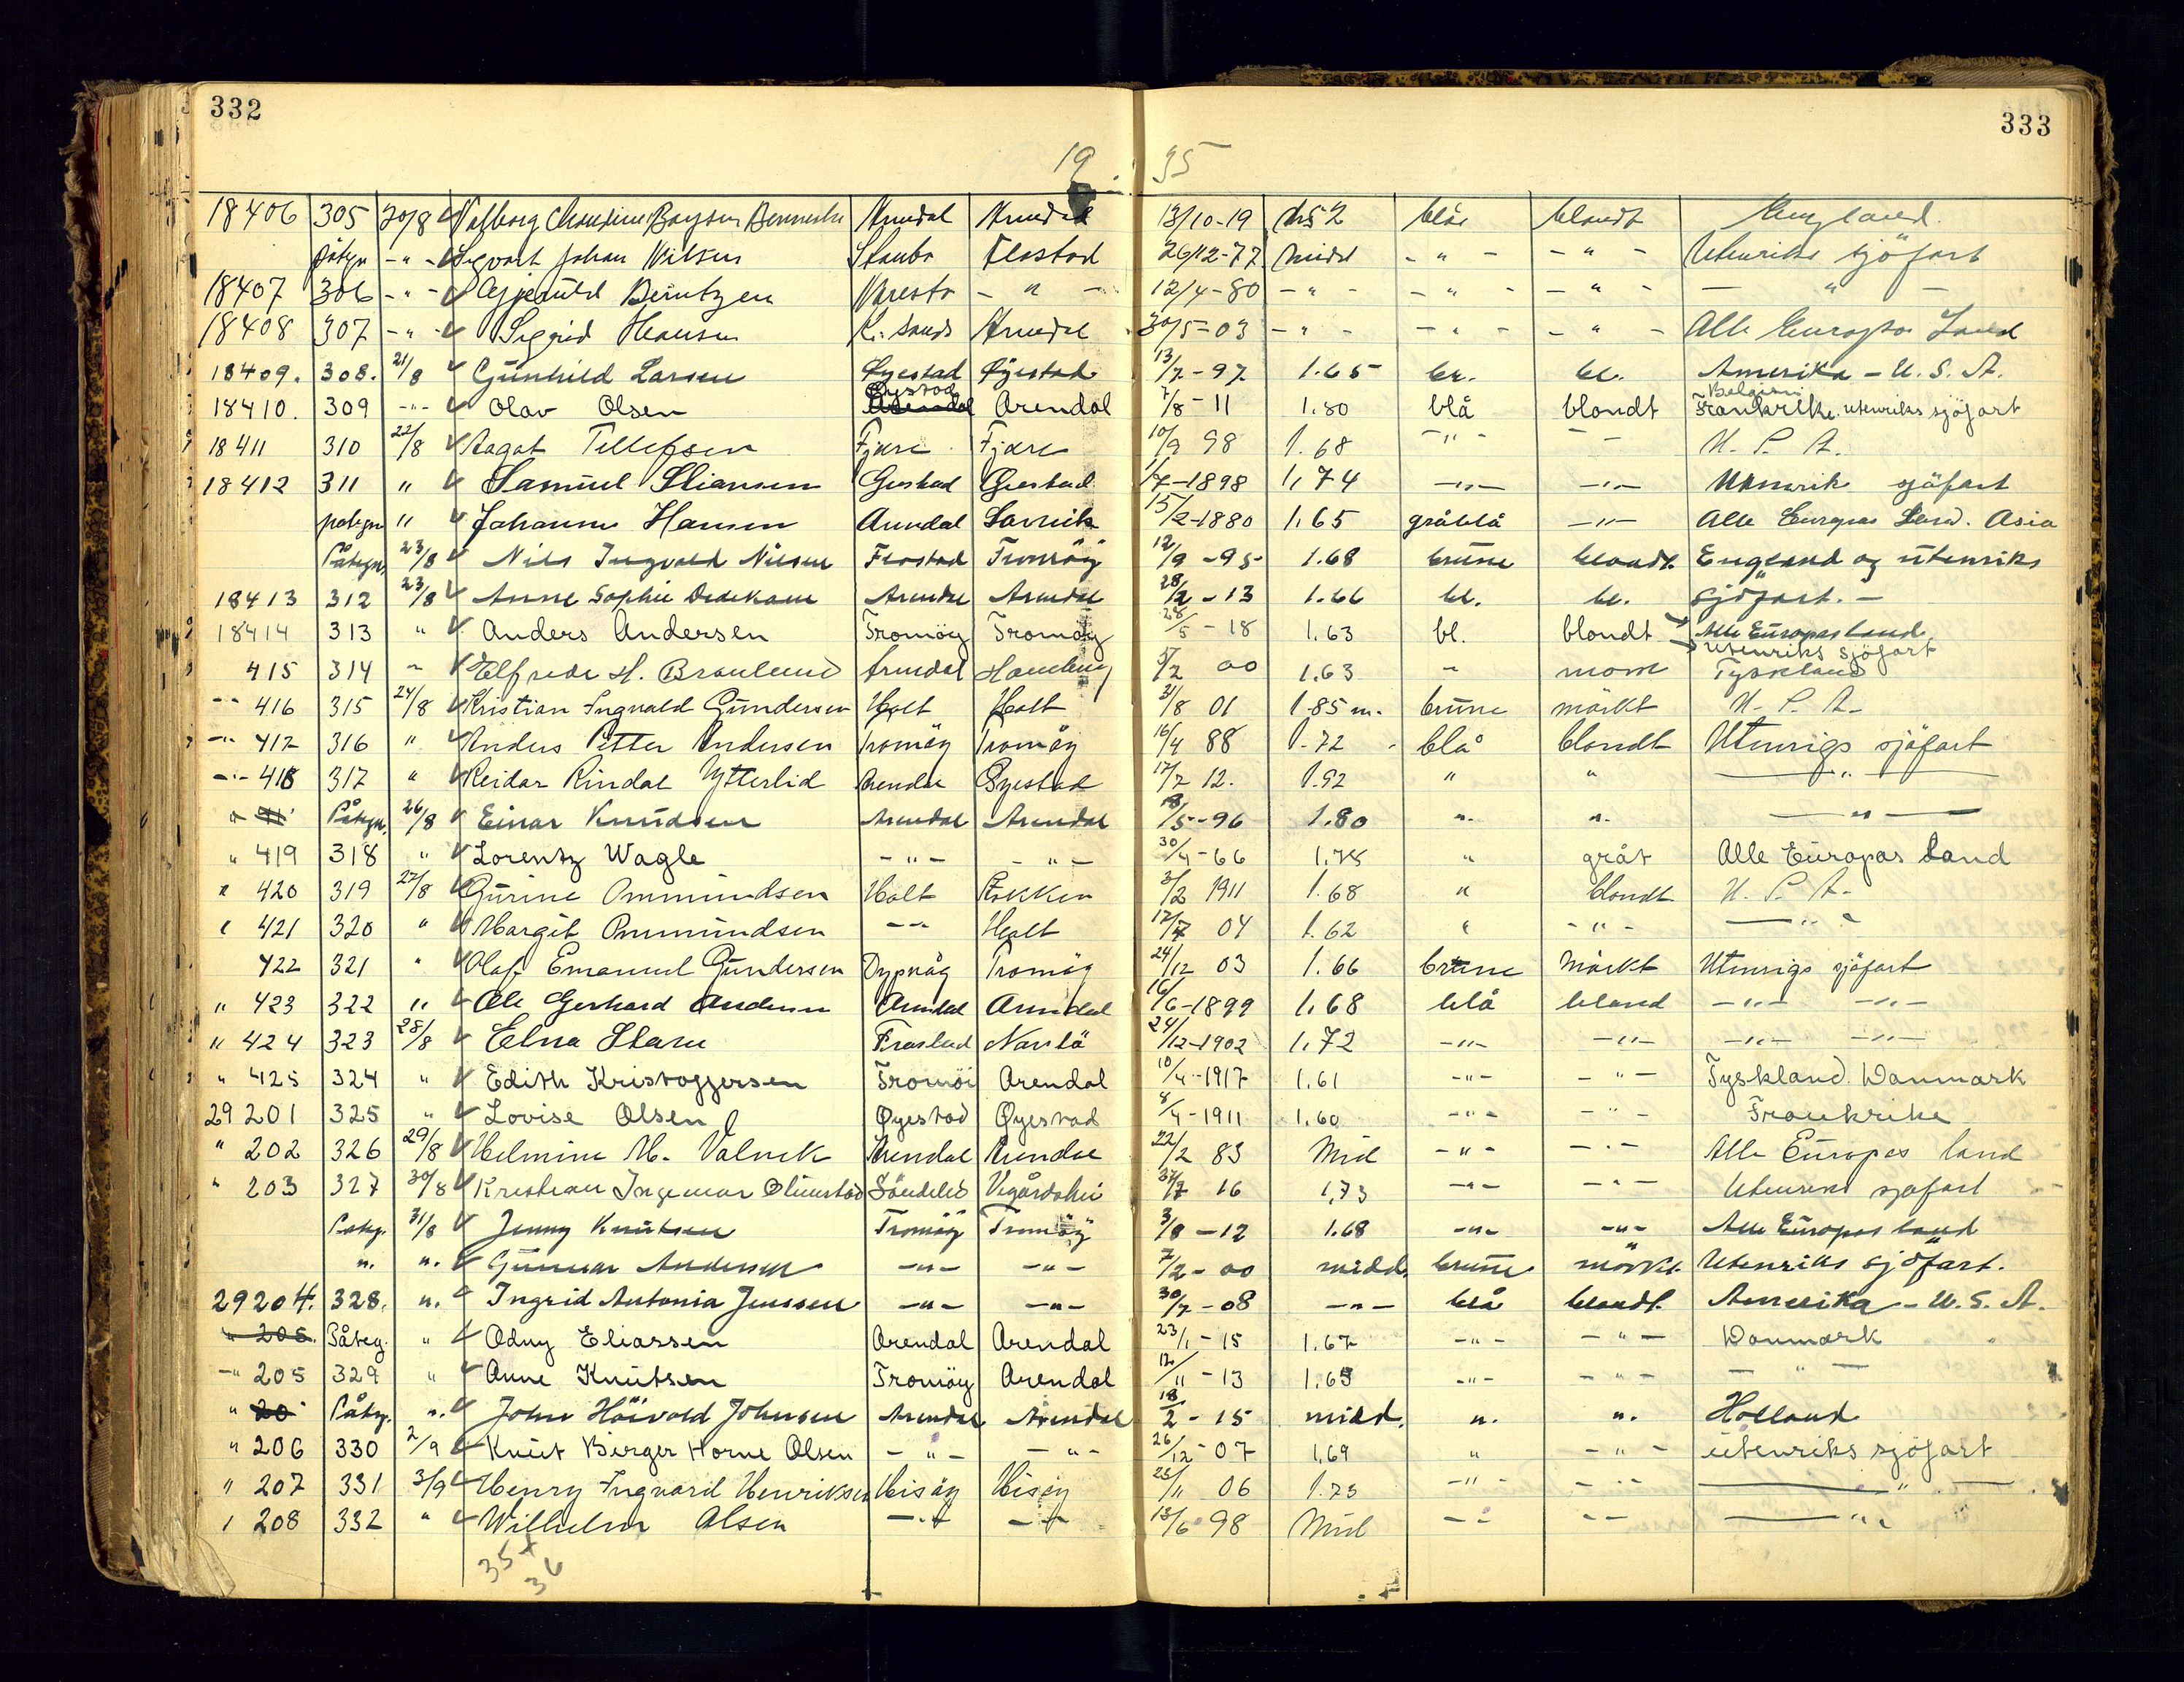 332
333
19 35
18406 305 20/8 Valborg Boysen Arendal Arendal 13/10-19 blå blondt England
påtegn -"- Sigvart Johan Nilsen Staubø Flostad 26/12-77 midd -"- -"- Utenriks sjöfart
18407 306 -"- Berntzen Narestø -"- 12/4-80 -"- -"- -"- -"-
18408 307 -"- Sigrid Hansen K. sand Arendal 30/5-03 -"- -"- -"- Alle Europas Land
18409. 308. 21/8 Gunhild Larsen Øyestad Øyestad 13/7-97 1.65 bl. bl. Amerika - U. S. A.
18410. 309 -"- Olav Olsen Øyestad Arendal 7/8-11 1.80 blå blondt Belgien Frankrike. utenriks sjöfart
18411 310 22/8 Aagot Tellefsen Fjære Fjære 10/9 98 1.68 -"- - - U. S. A.
18412 311 " Samuel 1/7-1898 1,74 -"- -"- Utenrik sjöfart
påtegn " Johannes Hansen Arendal Larvik 15/2-1880 1,65 gråblå -"- Alle Europas Land. Asia
Påtegn. 23/8 Nils Ingvald Nilsen Flostad Tromöy 12/9-95 1.68 brune blondt. England og utenriks
18413 312 23/8 Anne Sophie Dedekam Arendal Arendal 28/2-13 1.66 bl. bl. sjöfart. -
18414 313 " Anders Andersen Tromöy Tromöy 28/5-18 1.63 bl. blondt Alle Europas land, utenriks sjöfart
415 314 " Elfrede H. Arendal Hamburg 00 1.63 " Tyskland
-"- 416 315 24/8 Kristian Ingvald Gundersen Holt Holt 31/8 01 1.85 m. brune mörkt U. S. A.
-"- 417 316 " Anders Petter Andersen Tromöy Tromöy 16/4 88 1.72 blå blondt Utenrigs sjöfart
-"- 418 317 " Reidar Rindal Ytterlid Arendal Öyestad 17/7 12. 1.92 " " -"-
" Påtegn. 26/8 Einar Knudsen Arendal Arendal 18/5-96 1.80 ". ". -"-
" 419 318 " Lorentz Wagle -"- -"- 30/4-66 1,78 " gråt Alle Europas Land
" 420 319 27/8 Gurine Ommundsen Holt 3/2 1911 1.68 " blondt U. S. A.
" 421 320 " Margit Ommundsen -"- Holt 17/7 04 1.62 " -"- -"-
422 321 " Olaf Emanuel Gundersen Dypvåg Tromöy 24/12 03 1.66 brune Mörkt Utenrigs sjöfart
" 423 322 " Ole Gerhard Andersen Arendal Arendal 16/6-1899 1,68 blå blond -"- -"-
" 424 323 28/8 Elna Flostad 24/12-1902 1,72 -"- -"- -"- -"-
" 425 324 " Edith Kristoffersen Tromöi Arendal 10/4-1917 1.61 -"- -"- Tyskland. Danmark
29201 325 " Lovise Olsen Øyestad Øyestad 8/4-1911 1.60 -"- -"- Frankrike
" 202 326 29/8 Helmine M. Arendal Arendal 22/2 83 Mid -"- -"- Alle Europas land
" 203 327 30/8 Kristian Ingemar Söndeled Vegårdshei 16 1,73 -"- -"- Utenriks sjøfart
Påteg. 31/8 Jenny Knutsen Tromöy Tromöy 3/8-12 1.68 -"- -"- Alle Europas land
". ". Gunnar Andersen -"- -"- 7/2-00 midd. brune mörkt Utenriks sjöfart.
29204. 328. ". Ingrid Antonia Jenssen -"- -"- 30/7-08 -"- blå blondt. Amerika - U. S. A.
" 205. Påteg. " Odny Eliassen Arendal Arendal 23/1-15 1.67 -"- -"- Danmark
-"- 205 329 " Anne Knutsen Tromöy Arendal 12/11-13 1.65 -"- -"- -"-
" 20 Påteg. ". John Höivold Johnsen Arendal Arendal 18/2-15 midd. ". ". Holland
" 206 330 2/9 Knut Birger Horne Olsen -"- -"- 26/12-07 1,69 " -"- utenriks sjöfart
" 207 331 3/9 Henry Ingvard Henriksen Hisöy Hisöy 23/11 06 1.73 -"- -"- -"-
" 208 332 " Wilhelm Olsen -"- -"- 13/6 98 Mid -"- -"- -"-
35 +
36